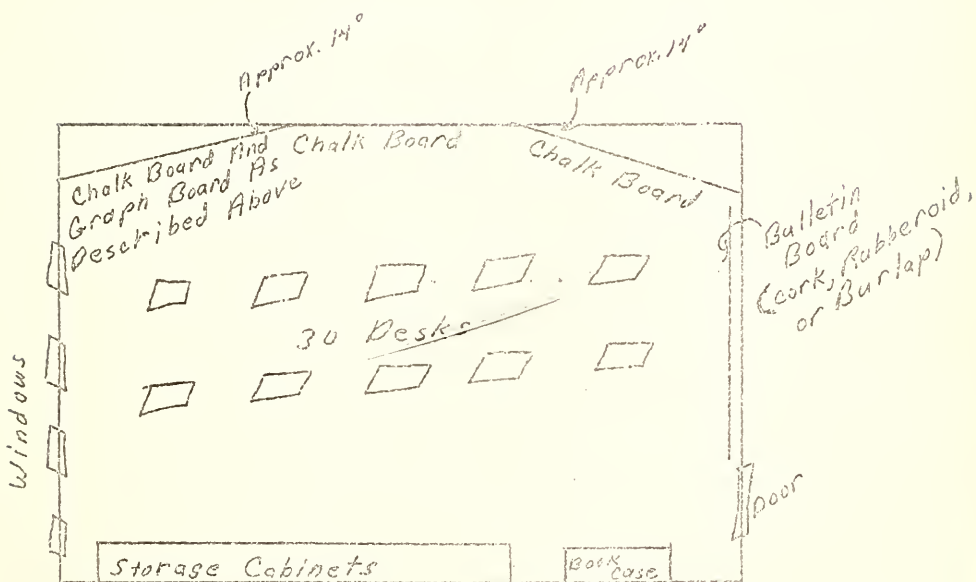 Approx. 14°
Approx. 14°
Chalk Board And
Graph Board As
Described Above
Chalk Board
Chalk Board
Bulletin
Board
(cork, Rubberoid,
or Burlap)
30 Desks
Windows
Door
Storage Cabinets
Book
Case